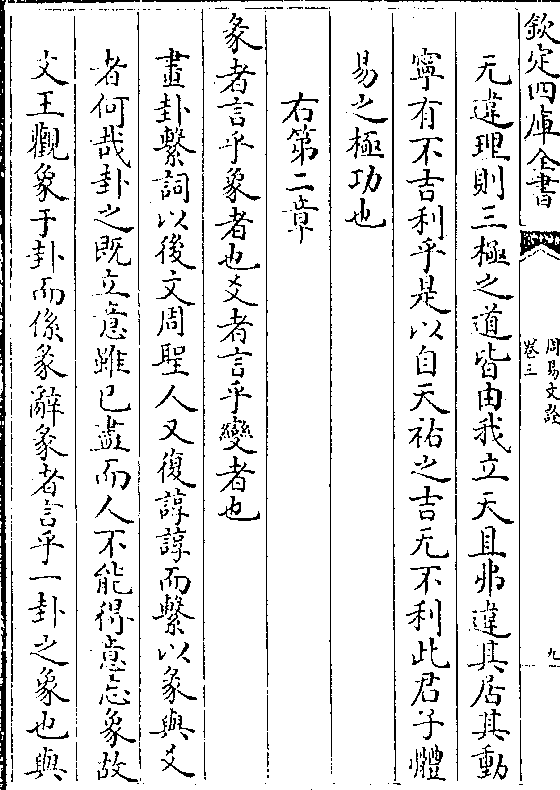 欽定四庫全書
周易文詮
卷三
九
无違理則三極之道皆由我立天且弗違其居其動
寧有不吉利乎是以自天祐之吉无不利此君子體
易之極功也
右第二章
彖者言乎象者也爻者言乎變者也
畫卦繫詞以後文周聖人又復諄諄而繫以彖與爻
者何哉卦之既立意雖已盡而人不能得意忘象故
文王觀象于卦而係彖辭彖者言乎一卦之象也與